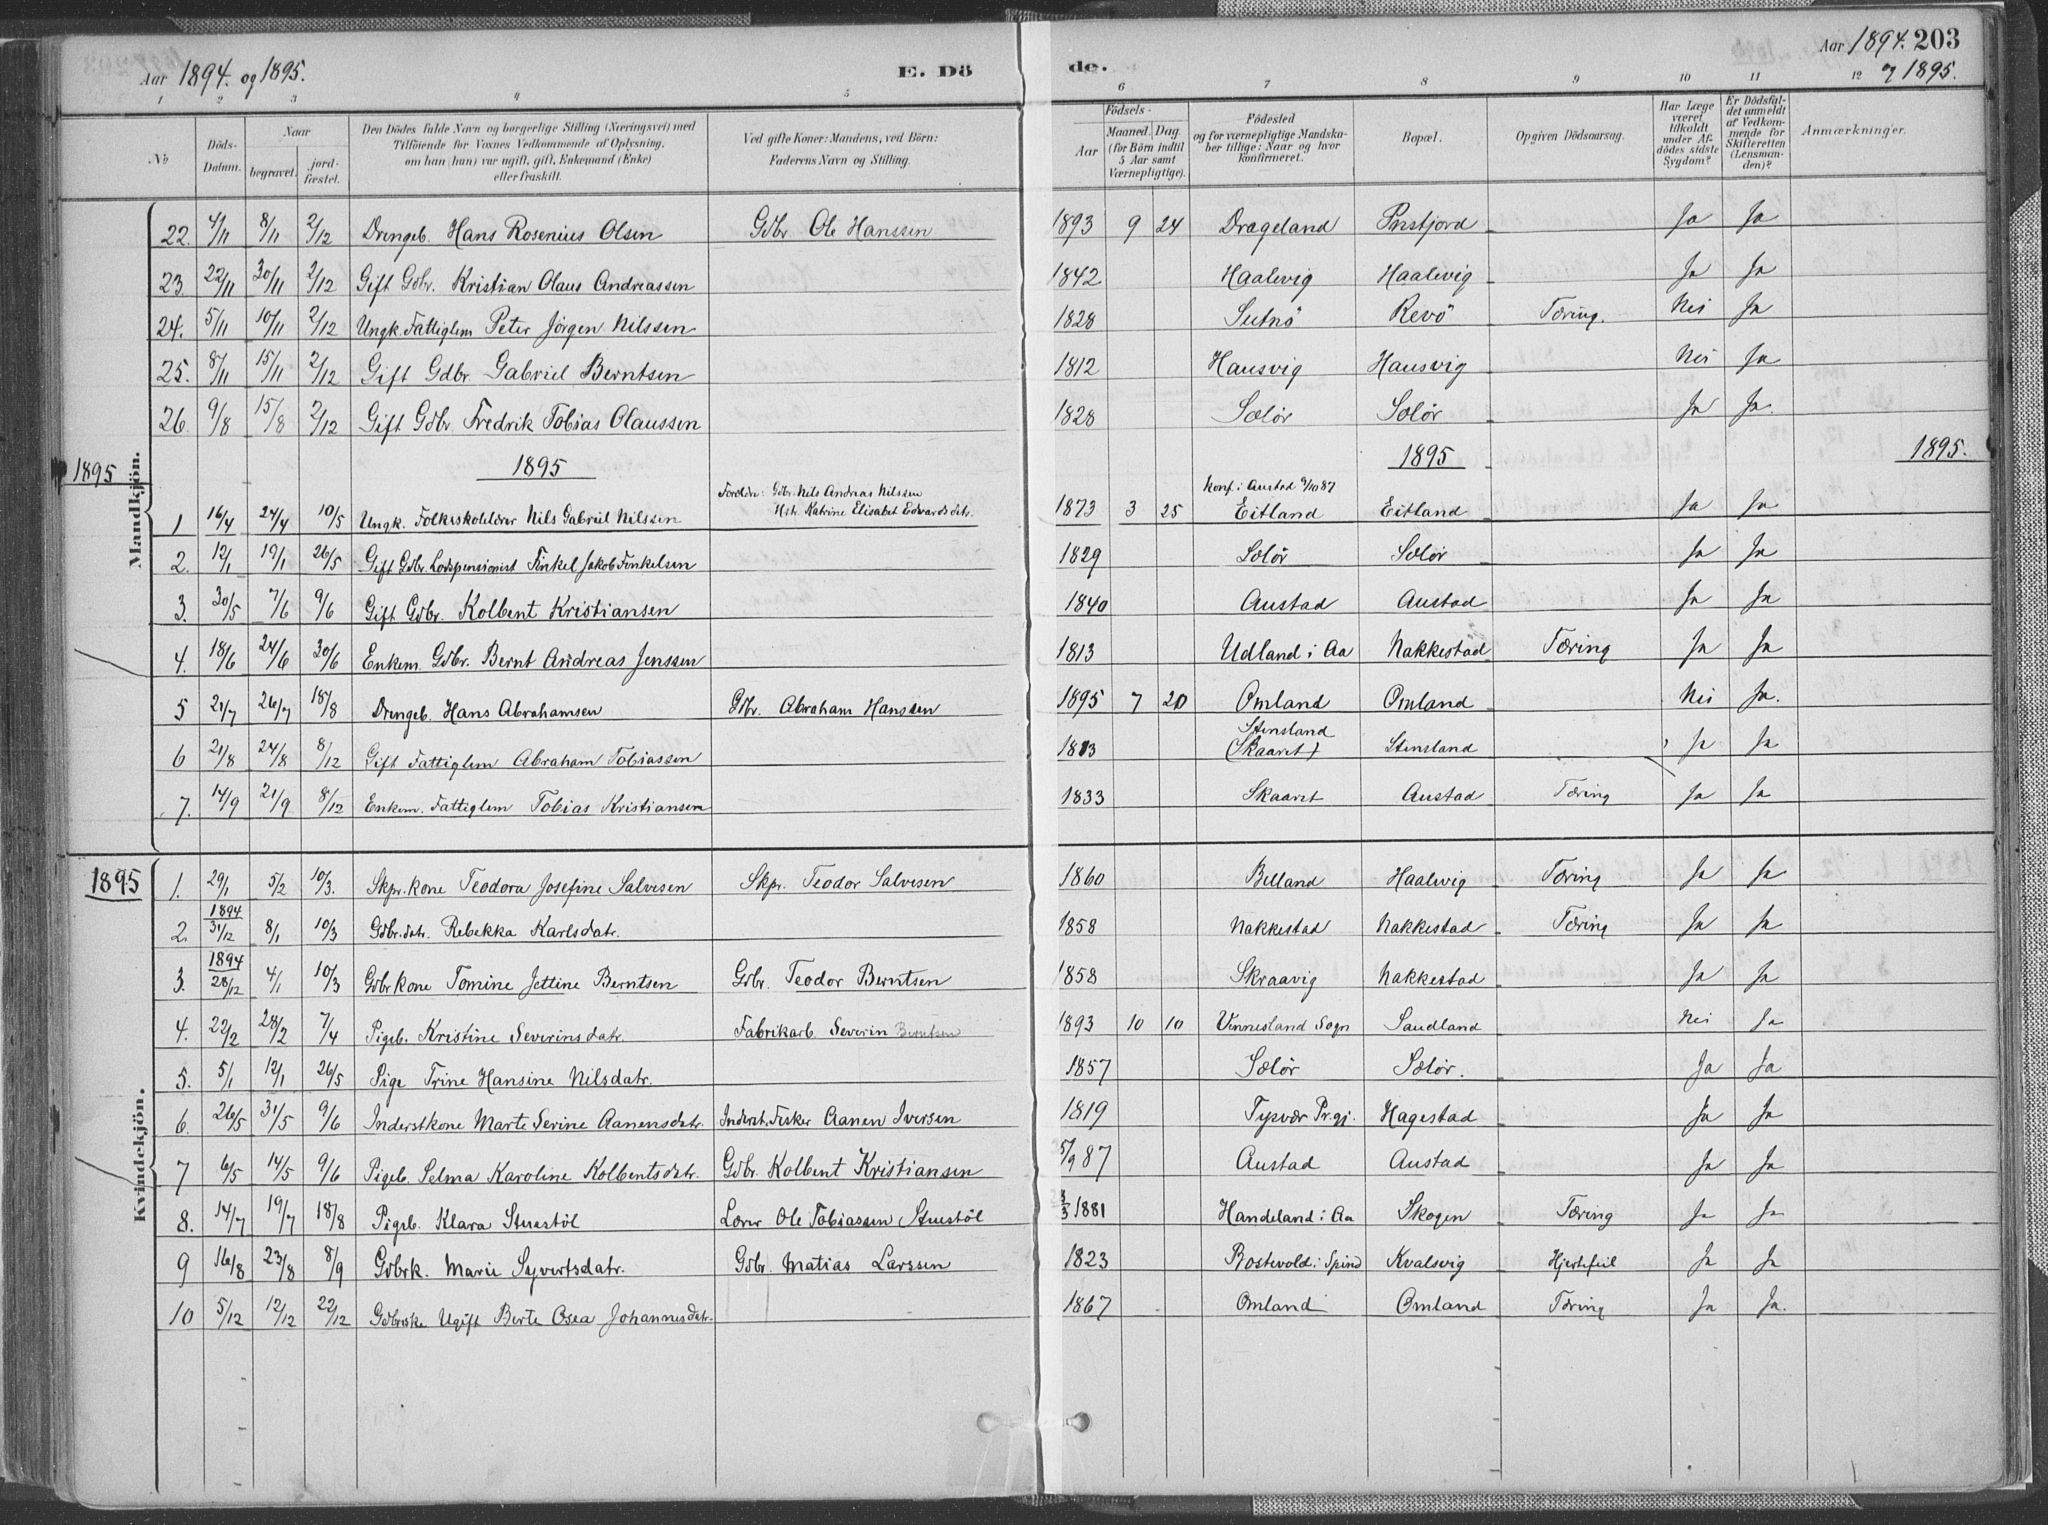 Aar 1894. og 1895. E. Dö
de. Aar 1894. 203
og 1895.
1 2 3 4 5 6 7 8 9 10 11 12
No Döds-Datum. Naar begravet. jord-fæstet. Den Dödes fulde Navn og borgerlige Stilling (Næringsvei) med Tilföiende for Voxnes Vedkommende af Oplysning. om han (hun) var ugift, gift, Enkemand (Enke) eller fraskilt. Ved gifte Koner: Mandens, ved Börn: Faderens Navn og Stilling. Födsels- Aar Maaned. Dag. (for Börn indtil 5 Aar samt Værnepligtige). Födested og for værnepligtige Mandskaber tillige: Naar og hvor konfirmeret. Bopæl. Opgiven Dödsaarsag. Har Læge været tilkaldt under Afdödes sidste Sygdom? Er Dödsfaldet anmeldt af Vedkommende for Skifteretten (Lensmanden)? Anmærkninger.
Mandkjön.
22. 4/11 8/11 2/12 Drengeb. Hans Rosenius Olsen Gdbr Ole Hanssen 1893 9 24 Drageland Ja Ja
23. 22/11 30/11 2/12 Gift Gdbr. Kristian Olaus Andreassen 1842 Haalevig Haalevig Ja Ja
24. 5/11 10/11 2/12 Ungk. Fattiglem Peter Jörgen Nilssen 1828 Revö Tæring. Nei Ja
25. 8/11 15/11 2/12 Gift Gdbr. Gabriel Berntsen 1812 Hausvig Hausvig Nei Ja
26. 9/8 15/8 2/12 Gift Gdbr. Fredrik Tobias Olaussen 1828 Selör Selör Ja Ja.
1895 1895 1895 1895.
1 16/4 24/4 10/5 Ungk. Folkeskolelærer Nils Gabriel Nilssen Foreldre: Gdbr. Nils Andreas Nilssen Hstr. Katrine Elisabet Edvardsdtr. 1873 3 25 Konf. i Austad 9/10 87 Eitland Eitland Ja Ja
2. 12/1 19/1 26/5 Gift Gdbr. Lodspensionist Tönkel Jakob Tönkelsen 1829 Selör Selör Ja Ja
3. 30/5 7/6 9/6 Gift Gdbr. Kolbent Kristiansen 1840 Austad Austad Ja Ja
4. 18/6 24/6 30/6 Enkem. Gdbr. Bernt Andreas Jenssen 1813 Udland i Aa Nakkestad Tæring Ja Ja
5 21/7 26/7 18/8 Drengeb. Hans Abrahamsen Gdbr. Abraham Hanssen 1895 7 20 Omland Omland Nei Ja.
6 21/8 24/8 8/12 Gift Fattiglem Abraham Tobiassen 1813 Stensland (Skaaret) Stensland Ja Ja
7. 14/9 21/9 8/12 Enkem. Fattiglem Tobias Kristiansen 1833 Skaaret Austad Tæring Ja Ja
1895
Kvindekjön.
1. 29/1 5/2 10/3. Skpr. kone Teodora Josefine Salvesen Skpr. Teodor Salvesen 1860 Belland Haalevig Tæring Ja Ja
2. 1894 31/12 8/1 10/3 Gdbr.datr. Rebekka Karlsdatr. 1858 Nakkestad Nakkestad Tæring Ja Ja
3. 1894 28/12 4/1 10/3 Gdbrkone Tomine Jettine Berntsen Gdbr. Teodor Berntsen 1858 Skraavig Nakkestad Ja Ja
4. 22/2 28/2 7/4 Pigeb. Kristine Severinsdatr. Fabrikarb. Severin Berntsen 1893 10 10 Vennesland Sogn Sandland Nei Ja
5. 5/1 12/1 26/5 Pige Trine Hansine Nilsdatr. 1857 Selör Selör. Ja Ja
6. 26/5 31/5 9/6 Inderstkone Marte Serine Aanensdatr. Inderst. Fisker Aanen Iversen 1819 Tysvær Pr.gj. Hagestad Ja Ja
7 6/5 14/5 9/6 Pigeb. Selma Karoline Kolbentsdatr. Gdbr. Kolbent Kristiansen 5/9 87 Austad Austad Ja Ja
8. 14/7 19/7 18/8 Pigeb. Klara Stusstöl Lærer Ole Tobiassen Stusstöl 3/3 1881 Handeland i Aa Skogen Tæring Ja Ja
9 16/8 23/8 8/9 Gdbrk. Marie Syvertsdatr. Gdbr. Matias Larssen 1823 Rostevold i Spind Kvalsvig Hjertefeil Ja Ja
10 5/12 12/12 22/12 Ugift Berte Osea Johannesdatr. 1867 Omland Omland Tæring Ja Ja.